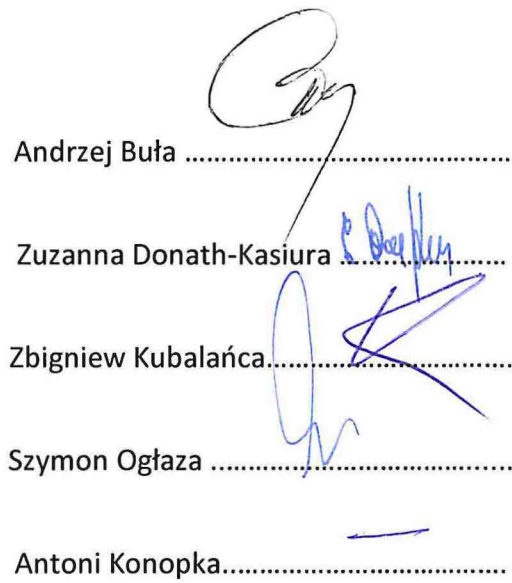 Andrzej Buła ..........................................
Zuzanna Donath-Kasiura .....................
Zbigniew Kubalańca................................
Szymon Ogłaza .......................................
Antoni Konopka.....................................